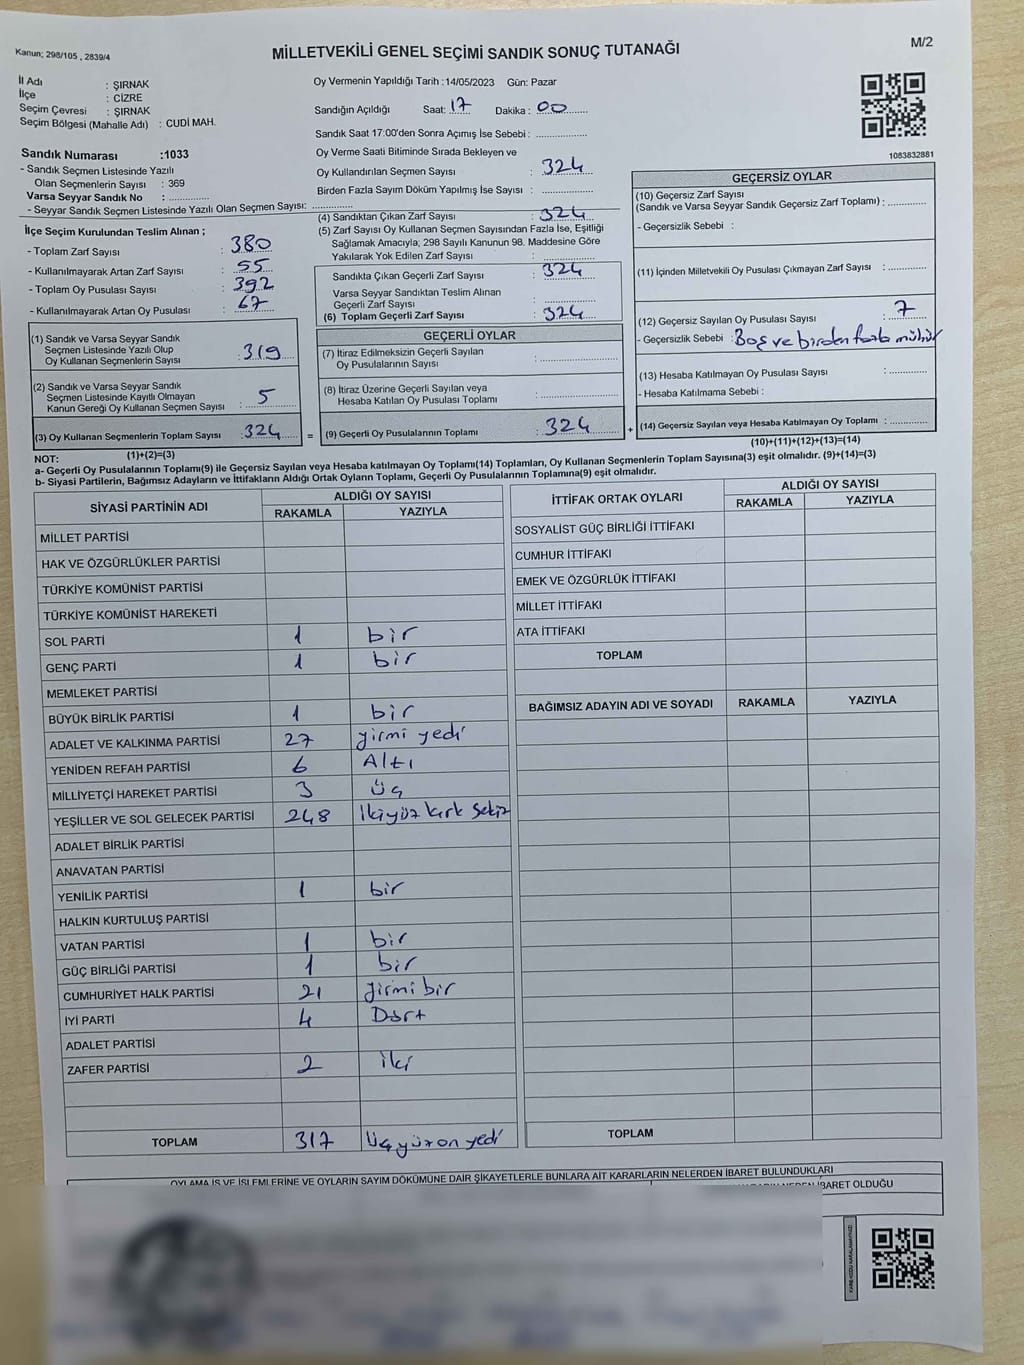 Kanun; 298/105 , 2839/4
MİLLETVEKİLİ GENEL SEÇİMİ SANDIK SONUÇ TUTANAĞI
M/2
İl Adı : ŞIRNAK
İlçe : CİZRE
Seçim Çevresi : ŞIRNAK
Seçim Bölgesi (Mahalle Adı) : CUDİ MAH.
Oy Vermenin Yapıldığı Tarih : 14/05/2023 Gün: Pazar
Sandığın Açıldığı Saat: 17 Dakika : 00
Sandık Saat 17:00'den Sonra Açımış İse Sebebi :
1083832881
Sandık Numarası :1033
- Sandık Seçmen Listesinde Yazılı
Olan Seçmenlerin Sayısı : 369
Varsa Seyyar Sandık No :
- Seyyar Sandık Seçmen Listesinde Yazılı Olan Seçmen Sayısı:
Oy Verme Saati Bitiminde Sırada Bekleyen ve
Oy Kullandırılan Seçmen Sayısı : 324
Birden Fazla Sayım Döküm Yapılmış İse Sayısı :
İlçe Seçim Kurulundan Teslim Alınan ;
- Toplam Zarf Sayısı : 380
- Kullanılmayarak Artan Zarf Sayısı : 55
- Toplam Oy Pusulası Sayısı : 392
- Kullanılmayarak Artan Oy Pusulası : 67
(4) Sandıktan Çıkan Zarf Sayısı : 324
(5) Zarf Sayısı Oy Kullanan Seçmen Sayısından Fazla İse, Eşitliği
Sağlamak Amacıyla, 298 Sayılı Kanunun 98. Maddesine Göre
Yakılarak Yok Edilen Zarf Sayısı :
Sandıkta Çıkan Geçerli Zarf Sayısı : 324
Varsa Seyyar Sandıktan Teslim Alınan
Geçerli Zarf Sayısı :
(6) Toplam Geçerli Zarf Sayısı : 324
(1) Sandık ve Varsa Seyyar Sandık
Seçmen Listesinde Yazılı Olup
Oy Kullanan Seçmenlerin Sayısı : 319
(2) Sandık ve Varsa Seyyar Sandık
Seçmen Listesinde Kayıtlı Olmayan
Kanun Gereği Oy Kullanan Seçmen Sayısı : 5
(3) Oy Kullanan Seçmenlerin Toplam Sayısı : 324 =
GEÇERLİ OYLAR
(7) İtiraz Edilmeksizin Geçerli Sayılan
Oy Pusulalarının Sayısı :
(8) İtiraz Üzerine Geçerli Sayılan veya
Hesaba Katılan Oy Pusulası Toplamı :
(9) Geçerli Oy Pusulalarının Toplamı : 324 +
GEÇERSİZ OYLAR
(10) Geçersiz Zarf Sayısı
(Sandık ve Varsa Seyyar Sandık Geçersiz Zarf Toplamı) :
- Geçersizlik Sebebi :
(11) İçinden Milletvekili Oy Pusulası Çıkmayan Zarf Sayısı :
(12) Geçersiz Sayılan Oy Pusulası Sayısı : 7
- Geçersizlik Sebebi : Boş ve birden fazla mühür
(13) Hesaba Katılmayan Oy Pusulası Sayısı :
- Hesaba Katılmama Sebebi :
(14) Geçersiz Sayılan veya Hesaba Katılmayan Oy Toplamı :
(10)+(11)+(12)+(13)=(14)
NOT: (1)+(2)=(3)
a- Geçerli Oy Pusulalarının Toplamı(9) ile Geçersiz Sayılan veya Hesaba katılmayan Oy Toplamı(14) Toplamları, Oy Kullanan Seçmenlerin Toplam Sayısına(3) eşit olmalıdır. (9)+(14)=(3)
b- Siyasi Partilerin, Bağımsız Adayların ve İttifakların Aldığı Ortak Oyların Toplamı, Geçerli Oy Pusulalarının Toplamına(9) eşit olmalıdır.
SİYASİ PARTİNİN ADI ALDIĞI OY SAYISI
RAKAMLA YAZIYLA
MİLLET PARTİSİ
HAK VE ÖZGÜRLÜKLER PARTİSİ
TÜRKİYE KOMÜNİST PARTİSİ
TÜRKİYE KOMÜNİST HAREKETİ
SOL PARTİ 1 bir
GENÇ PARTİ 1 bir
MEMLEKET PARTİSİ
BÜYÜK BİRLİK PARTİSİ 1 bir
ADALET VE KALKINMA PARTİSİ 27 yirmi yedi
YENİDEN REFAH PARTİSİ 6 Altı
MİLLİYETÇİ HAREKET PARTİSİ 3 üç
YEŞİLLER VE SOL GELECEK PARTİSİ 248 İkiyüz kırk sekiz
ADALET BİRLİK PARTİSİ
ANAVATAN PARTİSİ
YENİLİK PARTİSİ 1 bir
HALKIN KURTULUŞ PARTİSİ
VATAN PARTİSİ 1 bir
GÜÇ BİRLİĞİ PARTİSİ 1 bir
CUMHURİYET HALK PARTİSİ 21 yirmi bir
İYİ PARTİ 4 Dört
ADALET PARTİSİ
ZAFER PARTİSİ 2 iki
TOPLAM 317 Üçyüz on yedi
İTTİFAK ORTAK OYLARI ALDIĞI OY SAYISI
RAKAMLA YAZIYLA
SOSYALİST GÜÇ BİRLİĞİ İTTİFAKI
CUMHUR İTTİFAKI
EMEK VE ÖZGÜRLÜK İTTİFAKI
MİLLET İTTİFAKI
ATA İTTİFAKI
TOPLAM
BAĞIMSIZ ADAYIN ADI VE SOYADI RAKAMLA YAZIYLA
TOPLAM
OYLAMA İŞ VE İŞLEMLERİNE VE OYLARIN SAYIM DÖKÜMÜNE DAİR ŞİKAYETLERLE BUNLARA AİT KARARLARIN NELERDEN İBARET BULUNDUKLARI
İBARET OLDUĞU